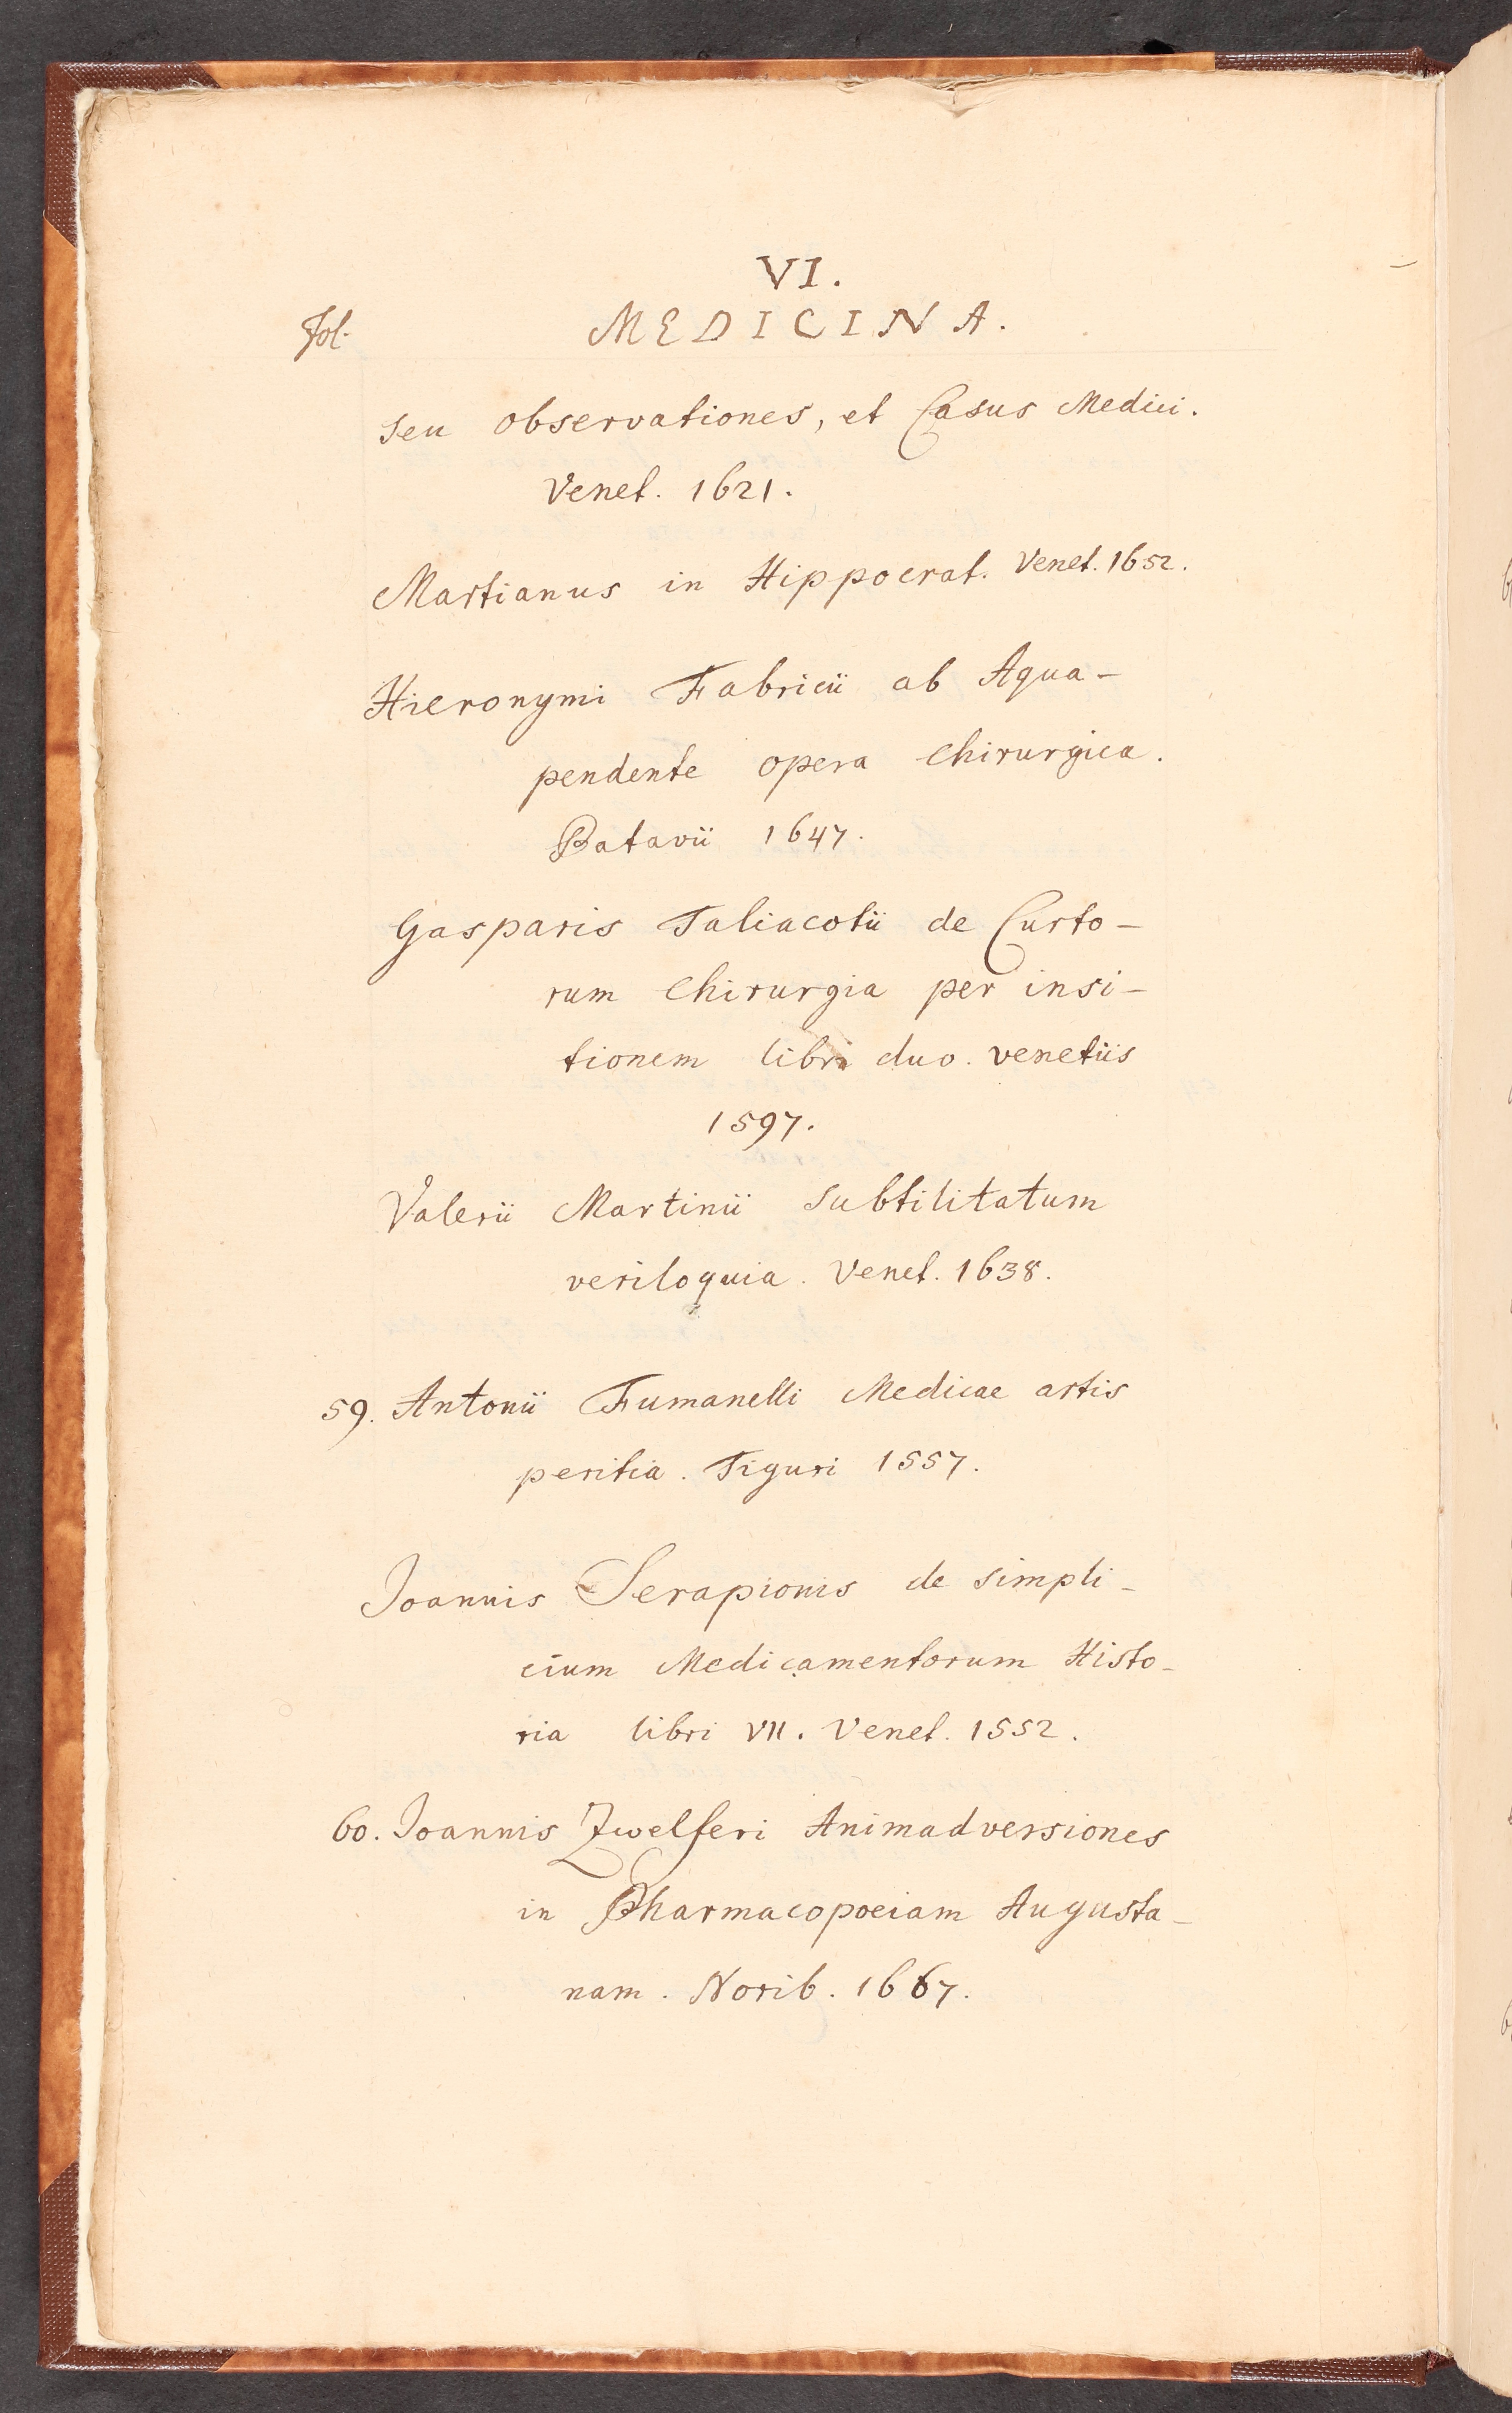 VI.
Fol. MEDICINA.
seu observationes, et Casus Medici.
Venet. 1621.
Martianus in Hippocrat. Venet. 1652.
Hieronymi Fabricii ab Aqua-
pendente opera Chirurgica.
Patavii 1647.
Gasparis Taliacotii de Curto-
rum Chirurgia per insi-
tionem libri duo. venetiis
1597.
Valerii Martinii subtilitatum
veriloquia. Venet. 1638.
59. Antonii Fumanelli Medicae artis
peritia. Tiguri 1557.
Joannis Serapionis de simpli-
cium Medicamentorum Histo-
ria libri VII. Venet. 1552.
60. Joannis Zwelferi Animadversiones
in Pharmacopoeiam Augusta-
nam. Norib. 1667.